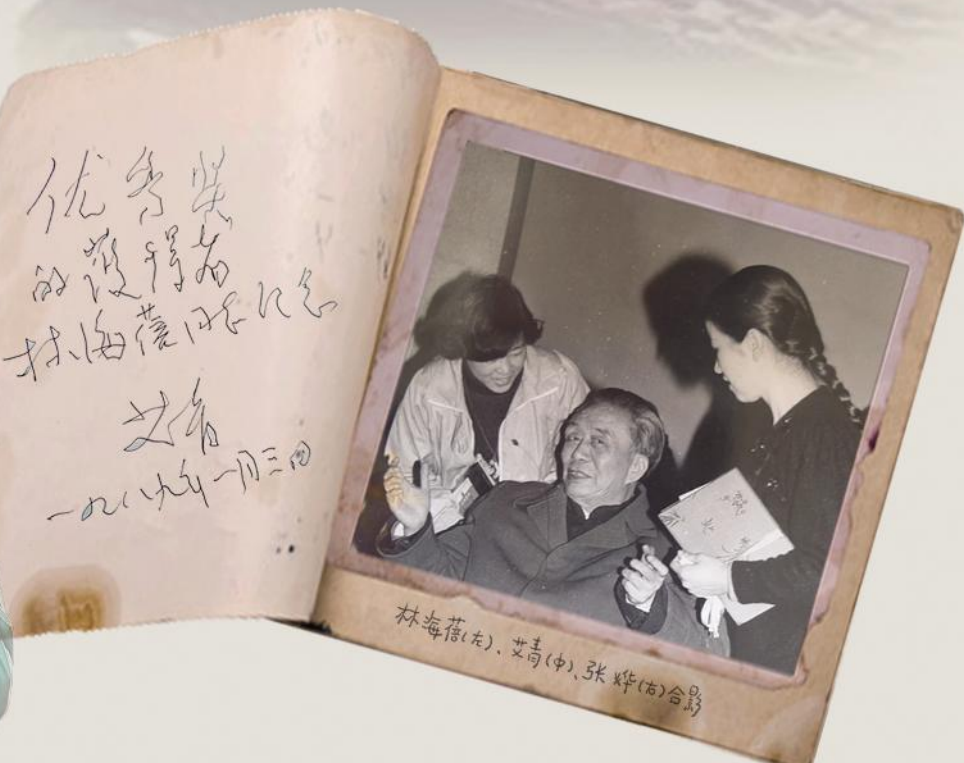 优秀奖
的获得者
林海蓓同志纪念
艾青
一九八九年一月三日
林海蓓(左)、艾青(中)、张烨(右)合影